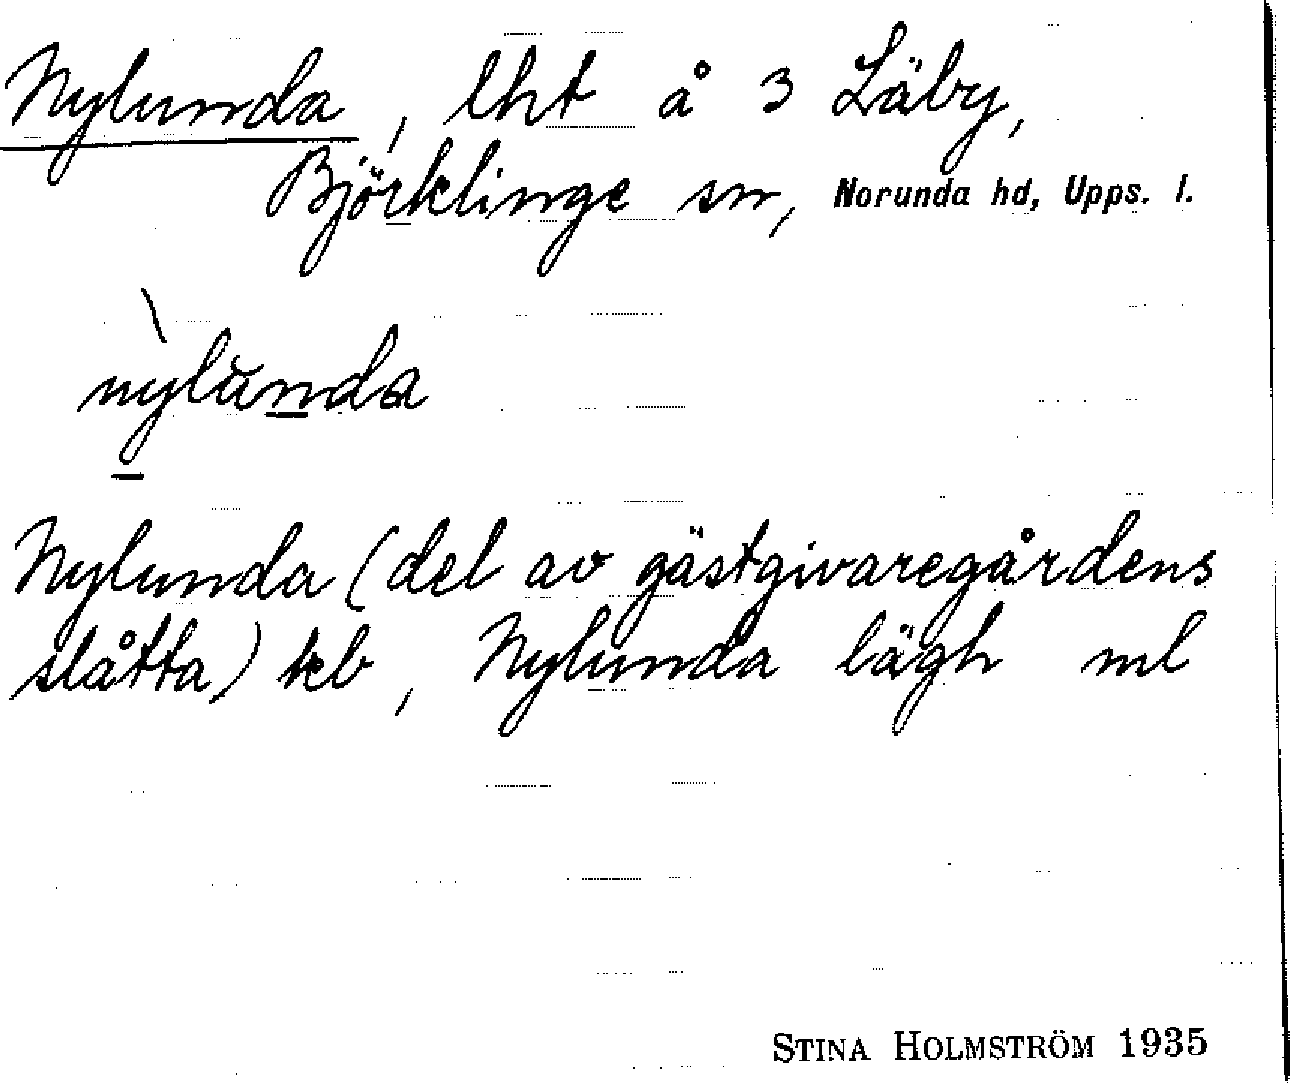 Nylunda, lht å 3 Läby,
Björklinge sn, Norunda hd, Upps. l.
nylŭnda
Nylunda (del av gästgivaregårdens
slåtta) kb, Nylunda lägh ml
STINA HOLMSTRÖM 1935